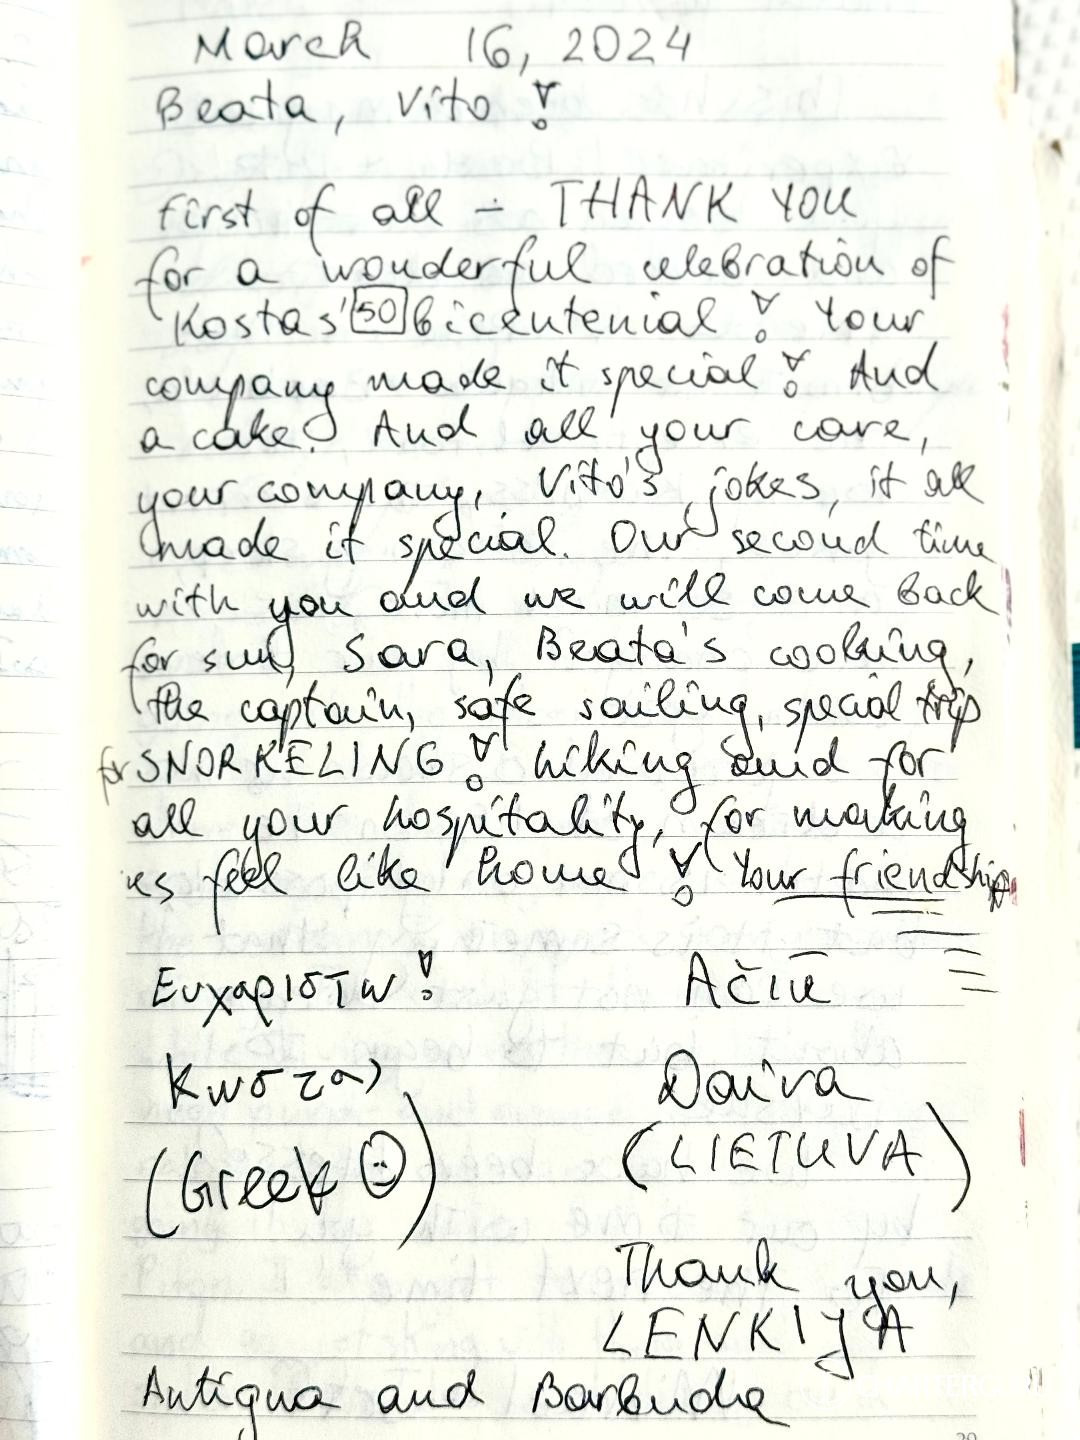 March 16, 2024
Beata, Vito!
first of all – THANK YOU
for a wonderful celebration of
Kostas' 50 bicentenial! Your
company made it special! And
a cake! And all your care,
your company, Vito's jokes, it all
made it special. Our second time
with you and we will come back
for sun, Sara, Beata's cooking,
the captain, safe sailing, special trip
for SNORKELING! hiking and for
all your hospitality, for making
us feel like home! Your friendship
Ευχαριστω! Ačiū
Κωστας Daiva
(Greek ☺) (LIETUVA)
Thank you,
LENKIJA
Antigua and Barbuda